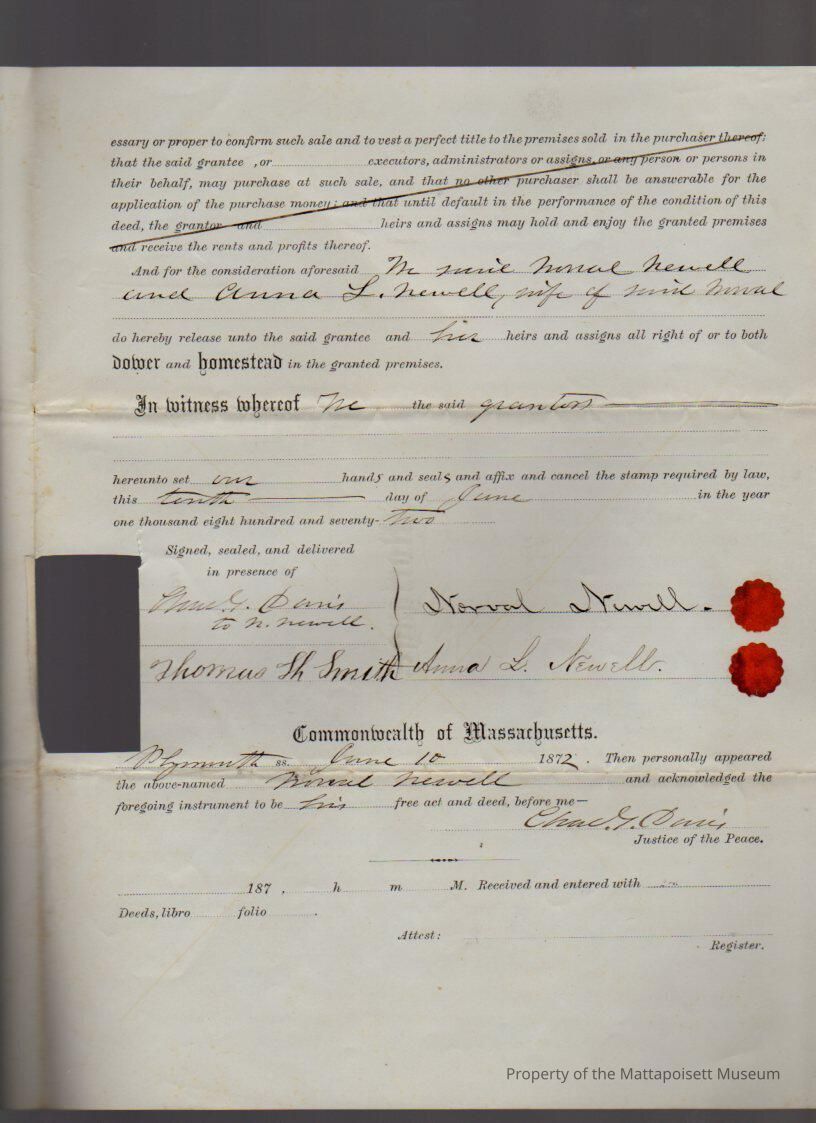 essary or proper to confirm such sale and to vest a perfect title to the premises sold in the purchaser thereof;
that the said grantee , or executors, administrators or assigns, or any person or persons in
their behalf, may purchase at such sale, and that no other purchaser shall be answerable for the
application of the purchase money; and that until default in the performance of the condition of this
deed, the grantor and heirs and assigns may hold and enjoy the granted premises
and receive the rents and profits thereof.
And for the consideration aforesaid We said Norval Newell
and Anna L. Newell, wife of said Norval
do hereby release unto the said grantee and his heirs and assigns all right of or to both
dower and homestead in the granted premises.
In witness whereof We the said grantors
hereunto set our hands and seals and affix and cancel the stamp required by law,
this tenth day of June in the year
one thousand eight hundred and seventy-two
Signed, sealed, and delivered
in presence of
Chas. G. Davis
to N. Newell.
Norval Newell.
Thomas Smith
Anna L. Newell.
Commonwealth of Massachusetts.
Plymouth ss. June 10 1872. Then personally appeared
the above-named Norval Newell and acknowledged the
foregoing instrument to be his free act and deed, before me—
Chas. G. Davis
Justice of the Peace.
187 , h m M. Received and entered with
Deeds, libro folio .
Attest:
Register.
Property of the Mattapoisett Museum